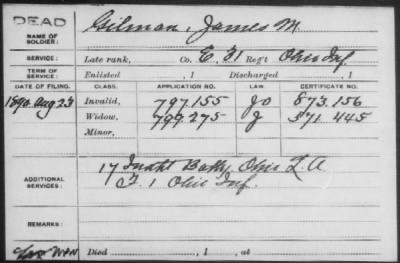 DEAD
NAME OF SOLDIER: Gilman, James M.
SERVICE: Late rank, Co. E, 31 Reg't Ohio Inf.
TERM OF SERVICE: Enlisted , 1 Discharged , 1
DATE OF FILING. CLASS. APPLICATION NO. LAW CERTIFICATE NO.
1890 Aug 23 Invalid, 797.155 Jo 873.156
Widow, 799.275 J 571.445
Minor,
ADDITIONAL SERVICES: 17 Indpt Batty Ohio L.A
F. 1 Ohio Inf.
REMARKS:
Died , 1 , at